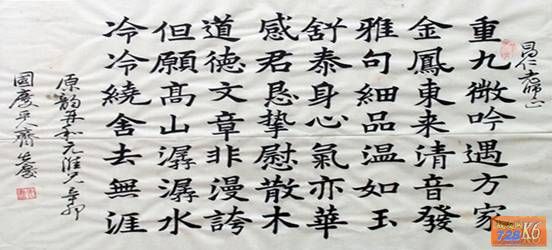 重九微吟遇方家
金鳳東来清音發
雅句細品温如玉
舒泰身心氣亦華
感君恳挚慰散木
道徳文章非漫誇
但願高山潺潺水
冷冷繞舍去無涯
原韵再和元淮兄辛卯
國慶
728
K6